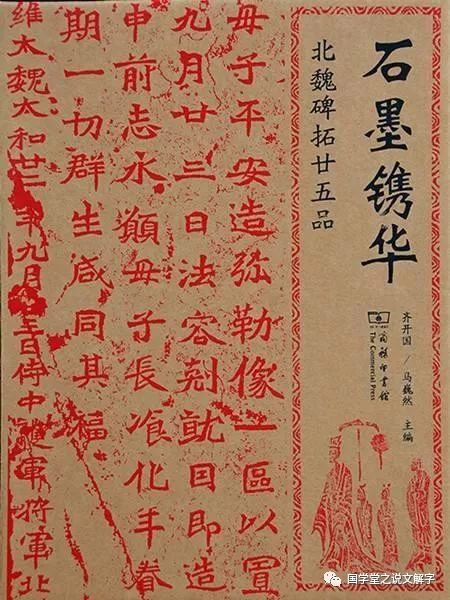 石墨镌华
北魏碑拓廿五品
齐开国 / 马巍然 主编
商務印書館
The Commercial Press
母子平安造弥勒像一區以置
九月廿三日法容剋就因即造
申前志永願母子長飡化年眷
期一切群生咸同其福
維太魏太和廿二年九月廿三日侍中護軍將軍北
国学堂之说文解字